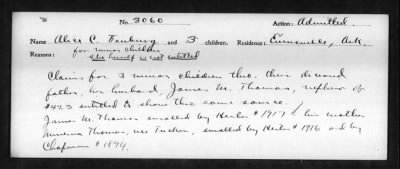 No. 3060 Action: Admitted
Name Alice C. Tenburg and 3 children. Residence: Evansville, Ark.
Reasons: for minor children
she herself is not entitled
Claims for 3 minor children thro. their deceased
father, her husband, James M. Thomas, nephew of
#423 entitled & show the same source.
James M. Thomas enrolled by Hester #1917 & his mother
Minerva Thomas, nee Tucker, enrolled by Hester #1916 and by
Chapman #1894.